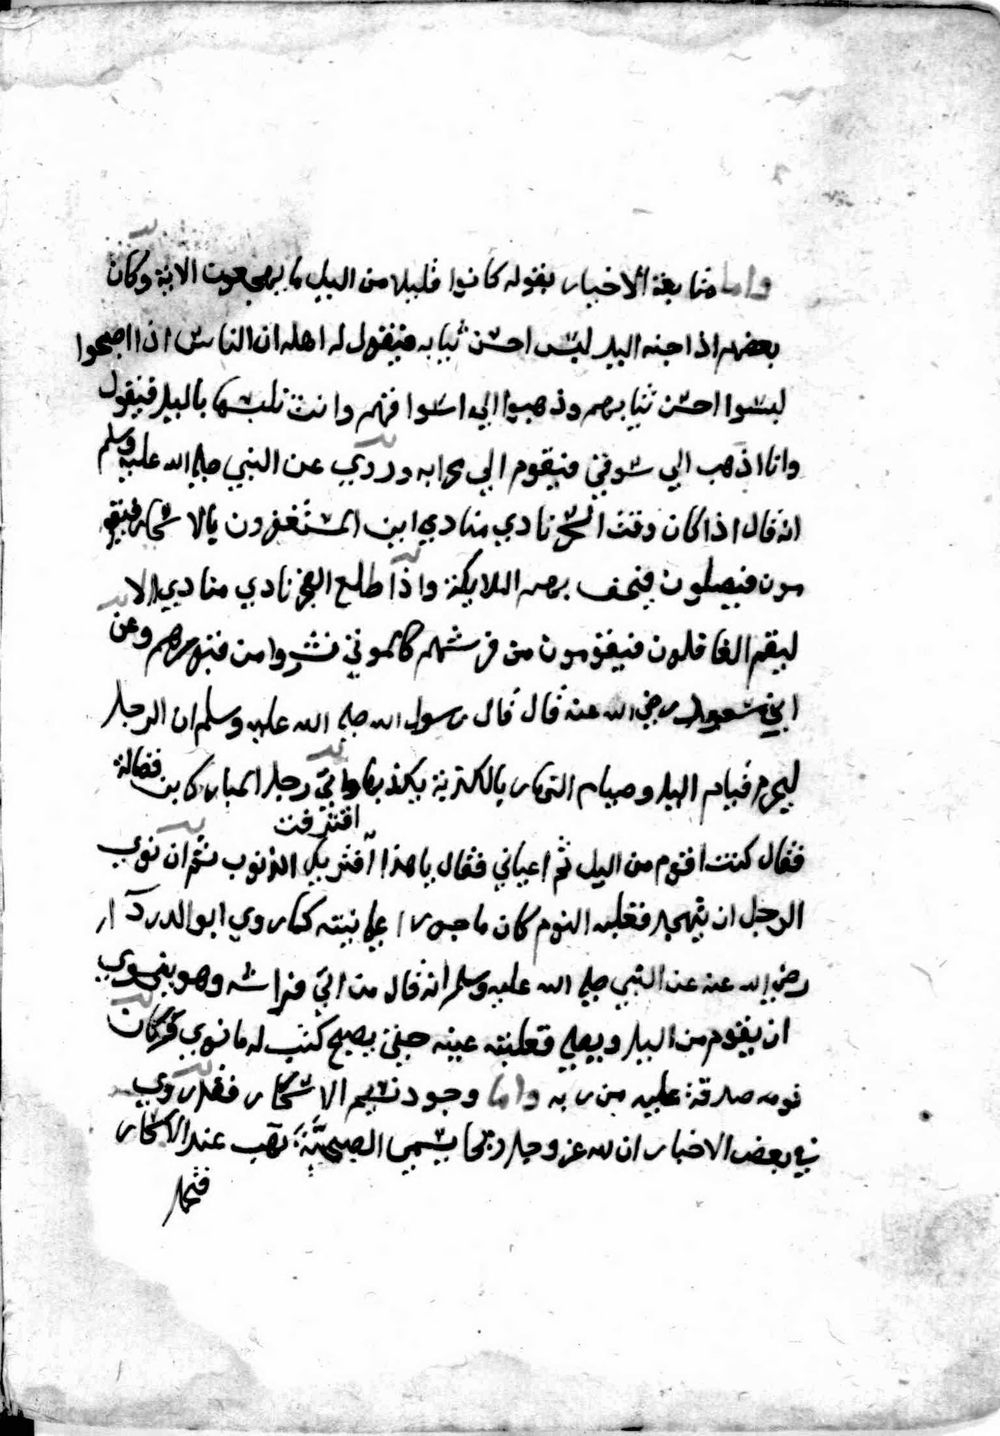 واما متابعة الاخيار بقوله كانوا قليلا من اليل ما يهجعون الاية وكان
بعضهم اذا جنه اليل لبس احسن ثيابه فيقول له اهله ان الناس اذا اصبحوا
لبسوا احسن ثيابهم وذهبوا الي اسواقهم وانت تلبسها باليل فيقول
وانا اذهب الي سوقي فيقوم الي محرابه وروي عن النبي صلي الله عليه وسلم
انه قال اذا كان وقت السحر نادي منادي اين المستغفرون بالاسحار فيقو
مون فيصلون فيحف بهم الملايكة واذا طلع الفجر نادي منادي الا
ليقم الغافلون فيقومون من فرشهم كالموتي نشروا من قبورهم وعن
ابن مسعود رضي الله عنه قال قال رسول الله صلي الله عليه وسلم ان الرجل
ليحرم قيام اليل وصيام النهار بالكذبة يكذبها واتي رجل المبارك بن فضالة
فقال كنت اقوم من اليل ثم اعياني فقال يا هذا اقتربك الذنوب ثم ان نوي
اقترفت
الرجل ان يتهجد فغلبه النوم كان ماجورا علي نيته كما روي ابو الدردآ
رضي الله عنه عن النبي صلي الله عليه وسلم انه قال من اتي فراشه وهو ينوي
ان يقوم من اليل ويصلي فغلبته عينه حتي يصبح كتب له ما نوي وكان
نومه صدقة عليه من ربه واما وجود نسيم الاسحار فقد روي
في بعض الاخبار ان لله عز وجل ريحا يسمي الصبيحة تهب عند الاسحار
فتحمل